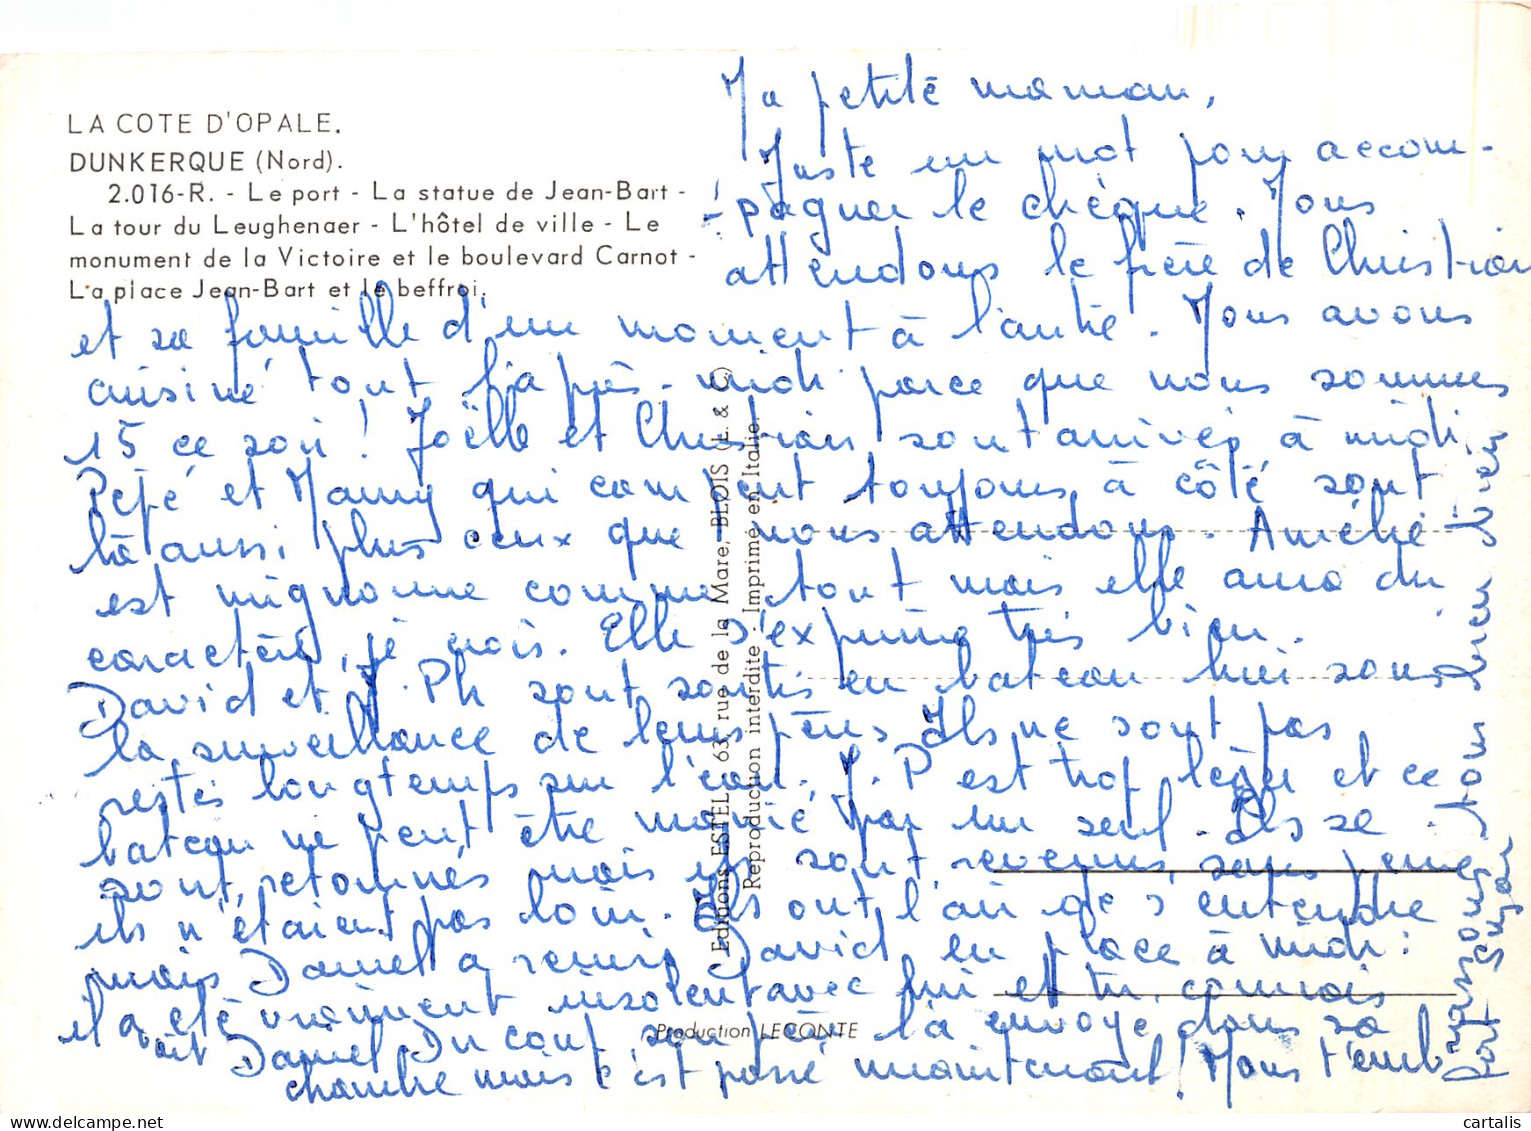 LA COTE D'OPALE.
DUNKERQUE (Nord).
2.016-R. - Le port - La statue de Jean-Bart -
La tour du Leughenaer - L'hôtel de ville - Le
monument de la Victoire et le boulevard Carnot -
La place Jean-Bart et le beffroi.
Ma petite maman,
Juste un mot pour accom-
pagner le chèque. Nous
attendons le frère de Christian
et sa famille d'un moment à l'autre. Nous avons
cuisiné tout l'après-midi parce que nous sommes
15 ce soir ! Joëlle et Christian sont arrivés à midi,
Pépé et Mamy qui campent toujours à côté sont
là aussi, plus ceux que nous attendons. Amélie
est mignonne comme tout mais elle aura du
caractère, je crois. Elle s'exprime très bien.
David et J. Ph sont sortis en bateau hier sous
la surveillance de leurs pères. Ils ne sont pas
restés longtemps sur l'eau, J. P est trop léger et ce
bateau ne peut être manié par un seul. Ils se
sont retournés mais ils sont revenus sans peine
ils n'étaient pas loin. Ils ont l'air de s'entendre
mais Daniel a remis David en place à midi :
il a été vraiment insolent avec lui et tu connais
Daniel. Du coup son père l'a envoyé dans sa
chambre mais c'est passé maintenant ! Nous t'emb
rassons tous bien bien
fort Suzon
Editions ESTEL - 63, rue de la Mare, BLOIS (L. & C.)
Reproduction interdite - Imprimé en Italie.
Production LECONTE
cartalis